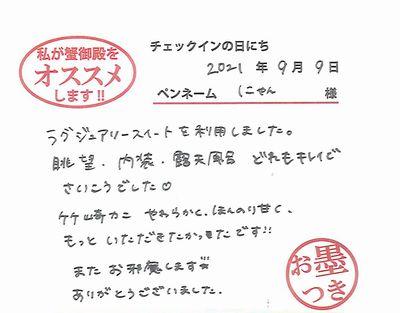 私が蟹御殿を
オススメ
します!!
チェックインの日にち
2021 年 9 月 9 日
ペンネーム しこやん 様
ラグジュアリースイートを利用しました。
眺望・内装・露天風呂 どれもキレイで
さいこうでした♡
竹崎カニ やわらかく、ほんのり甘く、
もっと いただきたかったです!!
また お邪魔します!!
ありがとうございました.
お墨
つき